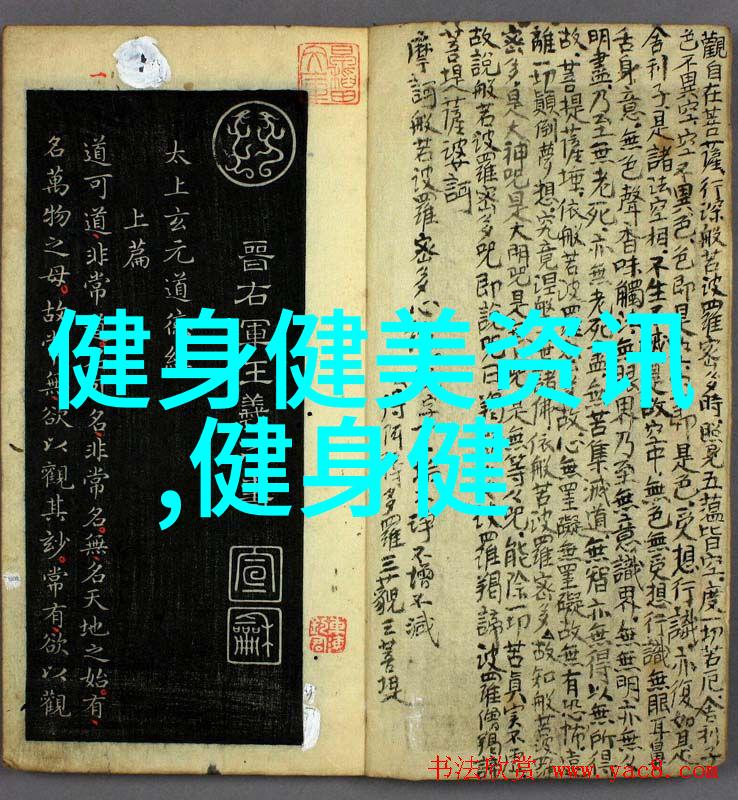 健身健美资讯
,健身健
觀自在菩薩行深般若波羅密多時照見五蘊皆空度一切苦厄舍利子
色不異空空不異色色即是空即是色受想行識亦復如是
舍利子是諸法空相不生不滅是故空中無色無受想行識無眼耳鼻
舌身意無色聲香味觸法無眼界乃至無意識界無無明亦無無
明盡乃至無老死亦無老死盡無苦集滅道無智亦無得以無所得
故菩提薩埵依般若波羅密多故心無罣礙無罣礙故無有恐怖遠
離一切顛倒夢想究竟涅槃世諸佛依般若波羅密多故知般若波羅
密多是大神咒是大明咒是無等々咒能除一切苦真實不虛
故說般若波羅密多咒即說咒曰揭波羅揭諦波羅僧揭諦
菩提薩婆訶
摩訶般若波羅密多心
淨不增不減
得阿耨多羅三藐三菩提
晉右軍王羲之書
太上玄元道德經
上篇
道可道非常名非常名無名天地之始有
名萬物之母故常無欲以觀其妙常有欲以觀
宣
龢
书法欣赏 www.yac8.com